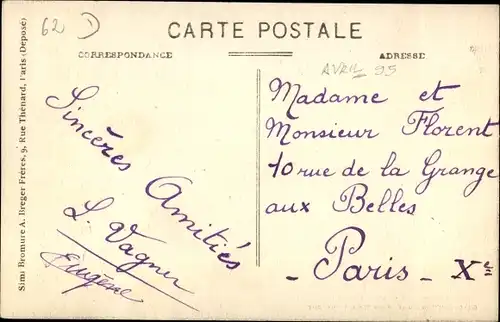 62
CARTE POSTALE
CORRESPONDANCE
ADRESSE
AVRIL 95
Sincères Amitiés
L. Vagner
Eugène
Madame et
Monsieur Florent
10 rue de la Grange
aux Belles
- Paris - Xe
Simi Bromure A. Breger Frères, 9, Rue Thénard, Paris (Déposé)